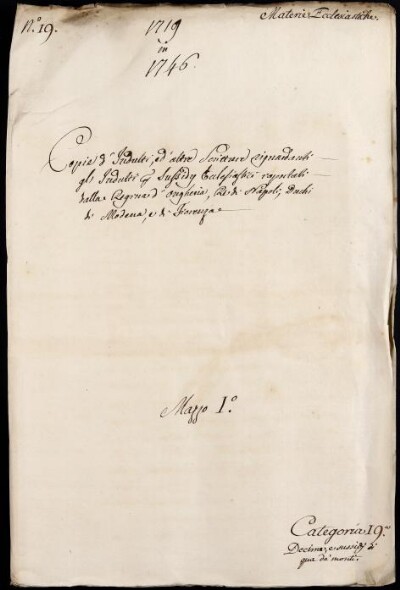 N.º 19.
Materie Eclesiastiche.
1719
in
1746.
Copie d'Indulti, ed altre Scritture riguardanti
gli Indulti per Sussidij Eclesiastici riportati
dalla Regina d'Ongheria, Rè di Napoli, Duchi
di Modena, e di Fiorenza
Mazzo I.º
Categoria 19.ª
Decime, e sussidj di
qua da' monti.